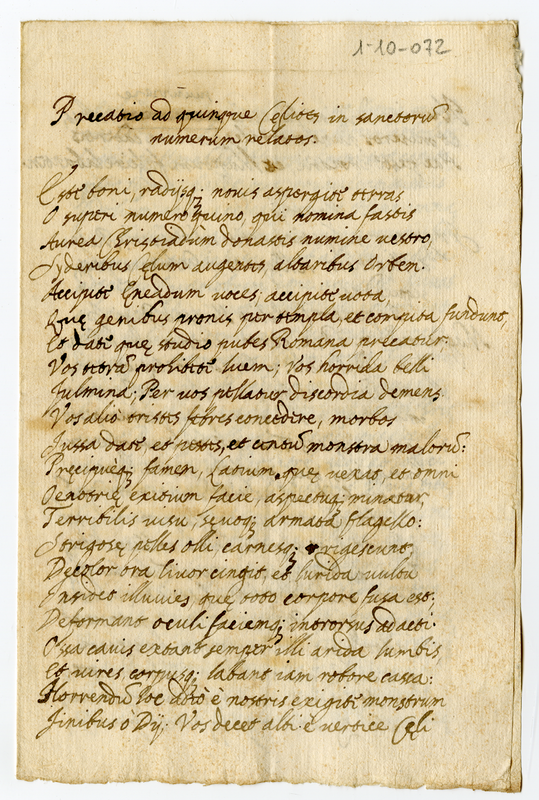 1-10-072
Precatio ad quinque Cęlites in sanctorũ
numerum relatos.
Este boni, radijsq; nouis aspergite terras
O superi numero quino, qui nomina fastis
Aurea Christiadùm donastis numine vestro,
Syderibus Cęlum augentes, altaribus Orbem.
Accipite Eneadum uoces, accipite uota,
Quę genibus pronis per templa, et compita fundunt,
Et date quę studio pubes Romana precatur.
Vos prohibete luem; vos horrida belli
Fulmina; Per vos pellatur discordia demens.
Vos alio tristes febres concedere, morbos
Iussa date, et pestes, et centũ monstra malorũ:
Pręcipueq; famem, Latium quę uexat, et omni
Oenotrię exitium facie, aspectuq; minatur,
Terribilis uisu, sęuoq; armata flagello:
Strigosę pelles olli, carnesq; rigescunt,
Decolor ora liuor cingit, et lurida uultu
Insidet illuuies, quę toto corpore fusa est;
Deformant oculi faciemq; introrsus adacti
Ossa cauis extant semper illi arida lumbis,
Et uires corpusq; labant iam robore cassa:
Horrendũ hoc è nostris exigite monstrum
Finibus ò Dij; Vos decet alti è uertice Cęli